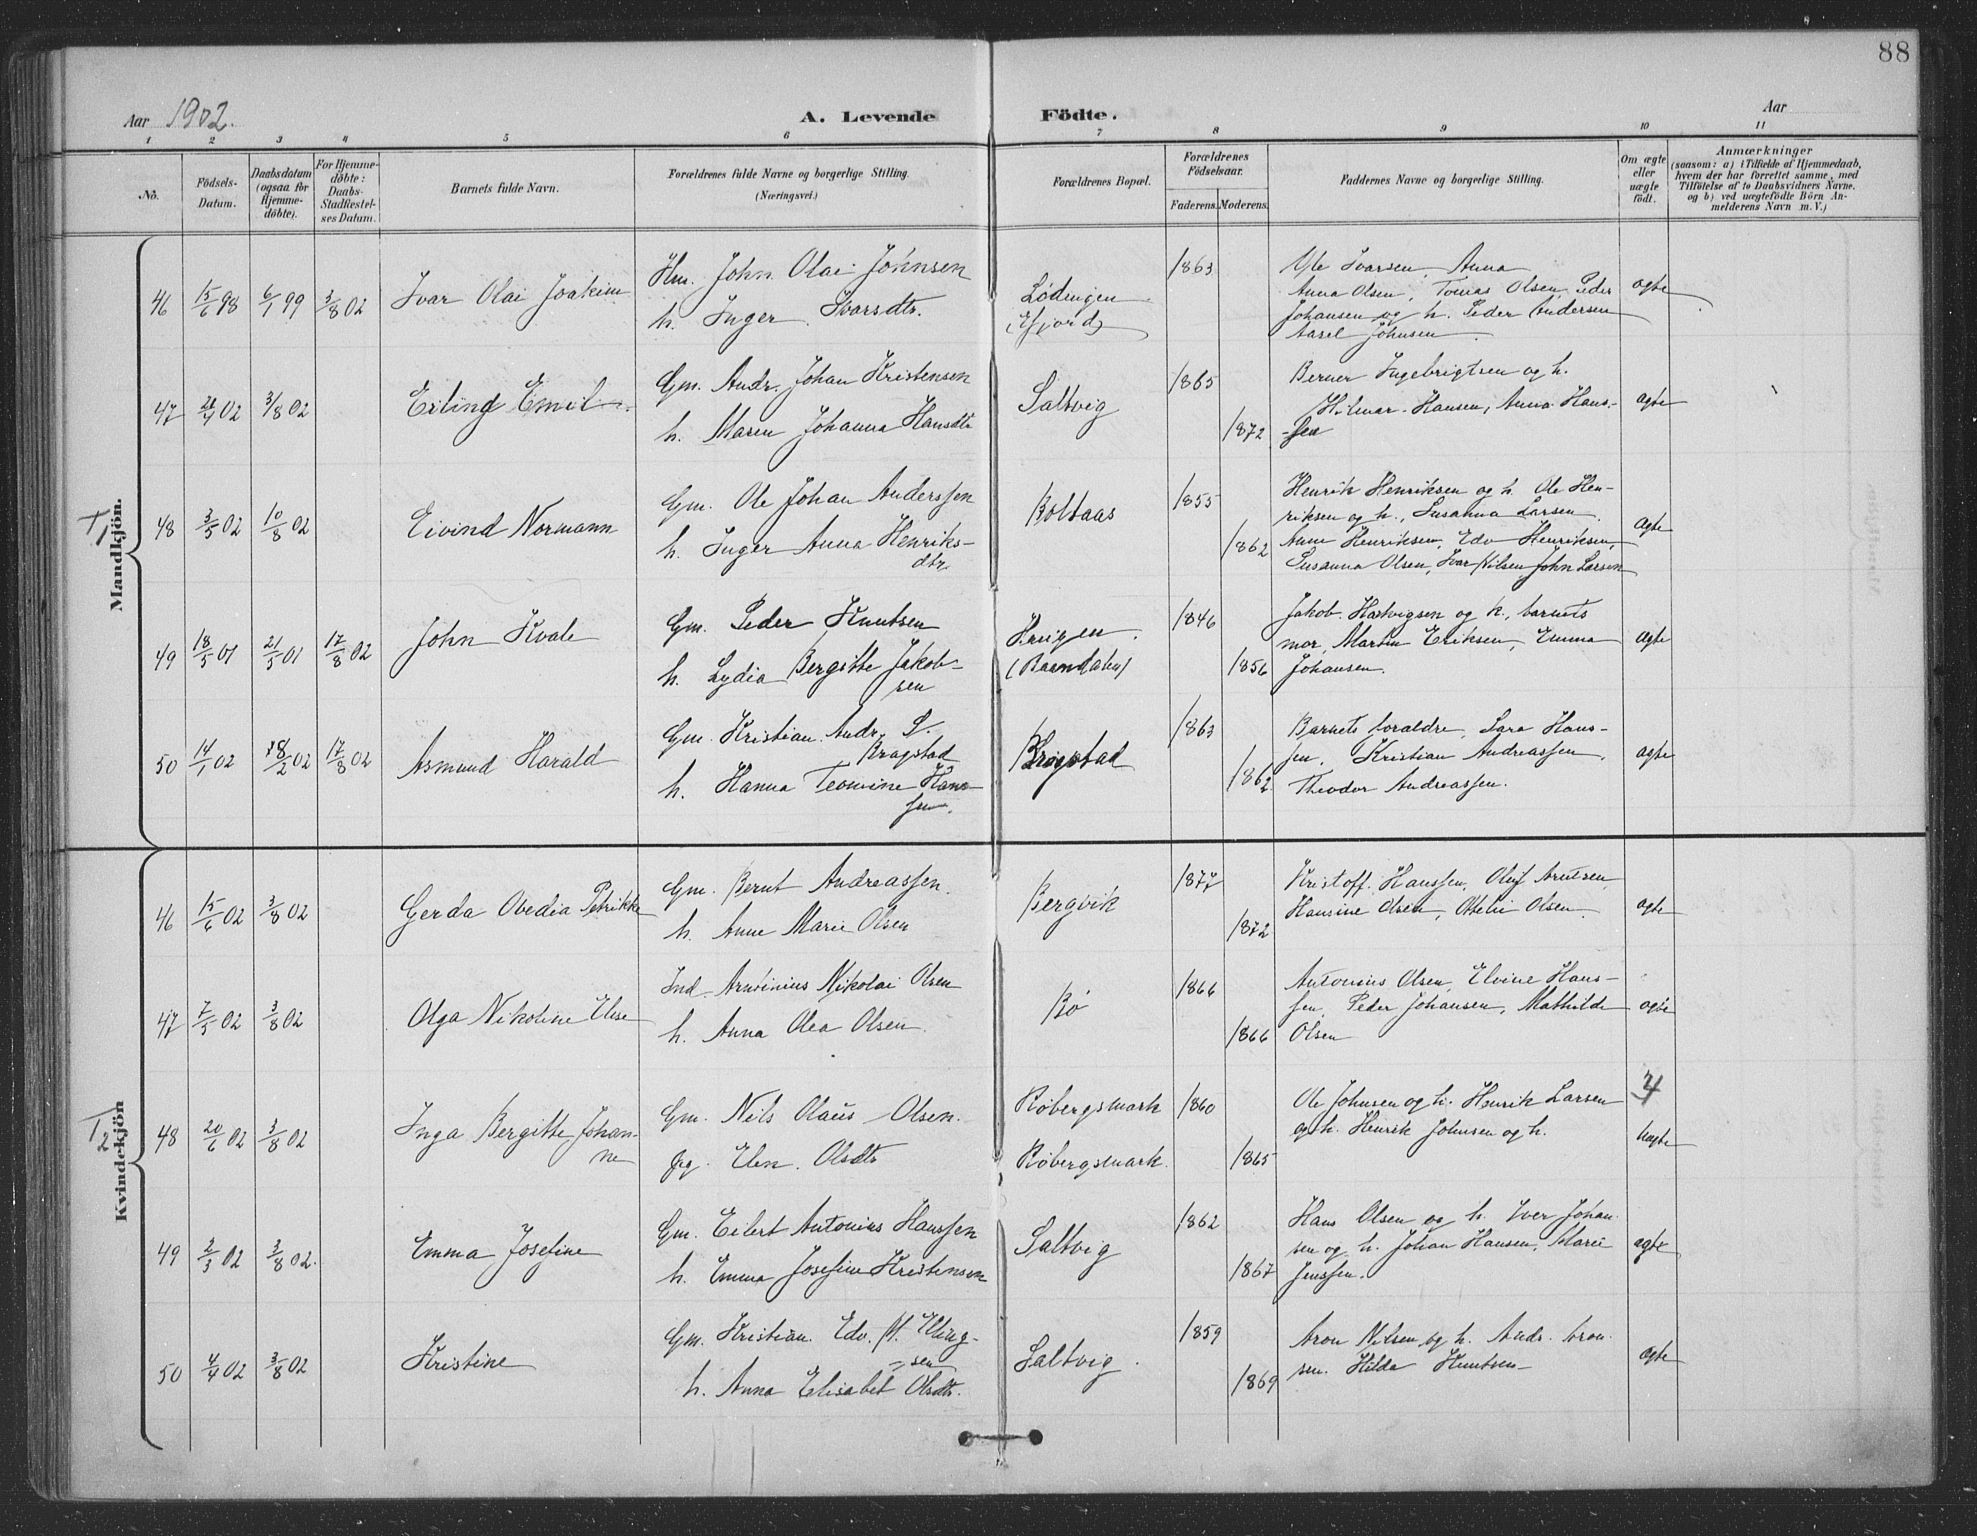 88
Aar 1902.
A. Levende Födte.
Aar
1 2 3 4 5 6 7 8 9 10 11
No.
Födsels-Datum.
Daabsdatum (ogsaa for Hjemme-döbte).
For Hjemme-döbte: Daabs-Stadfæstel-ses Datum.
Barnets fulde Navn.
Forældrenes fulde Navne og borgerlige Stilling. (Næringsvei.)
Forældrenes Bopæl.
Forældrenes Födselsaar.
Faderens. Moderens.
Faddernes Navne og borgerlige Stilling.
Om ægte eller uægte födt.
Anmærkninger
(saasom: a) i Tilfælde af Hjemmedaab,
hvem der har forrettet samme, med
Tilföielse af to Daabsvidners Navne.
og b) ved uægtefödte Börn An-
melderens Navn m. V.)
Mandkjön.
46 15/6 98 6/1 99 3/8 02 Ivar Olai Joakim
Hm. John Olai Johnsen
h. Inger Ivarsdtr.
Lødingen
(Efjord)
1863
Ole Ivarsen, Anna
Anna Olsen, Tomas Olsen, Peder
Johansen og h. Peder Andersen
Aarel Johnsen
ægte
47 21/4 02 3/8 02 Erling Emil
Gm. Andr. Johan Kristensen
h. Maren Johanna Hansdtr
Saltvig
1865
1872
Berner Ingebrigtsen og h.
Hilmar Hansen, Anna Hans-
-sen
ægte
48 3/5 02 10/8 02 Eivind Normann
Gm. Ole Johan Anderssen
h. Inger Anna Henriks-
dtr
Boltaas
1855
1862
Henrik Henriksen og h. Ole Hen-
riksen og h., Susanna Larsen
Anne Henriksen, Edv Henriksen,
Susanna Olsen, Ivar Nilsen, John Larsen
ægte
49 18/5 01 21/5 01 17/8 02 John Kvale
Gm. Peder Knutsen
h. Lydia Bergitte Jakob-
sen
(Barndalen)
1846
1856
Jakob Hartvigsen og h., barnets
mor, Martin Eriksen, Emma
Johansen.
ægte
50 14/1 02 18/2 02 17/8 02 Asmund Harald
Gm. Kristian Andr. S.
Kragstad
h. Hanna Teomine Hans-
sen.
1863
1862
Barnets foraldre, Sara Hans-
sen, Kristian Andreassen,
Theodor Andreassen.
ægte
Kvindekjön
46 15/6 02 3/8 02 Gerda Ovedia Petrikke
Gm. Bernt Andreassen.
h. Anne Marie Olsen
Bergvik
1877
1872
Kristoff. Hanssen, Oluf Arntsen,
Hansine Olsen, Ottelie Olsen
ægte
47 7/5 02 3/8 02 Olga Nikoline Elise
Ind. Arntinius Nikolai Olsen
h. Anna Olea Olsen
Bø
1866
1866
Antonius Olsen, Elvine Hans-
sen, Peder Johansen, Mathilde
Olsen
ægte
48 20/6 02 3/8 02 Inga Bergitte Johan-
ne
Gm. Nils Olaus Olsen.
Pg. Elen Olsdtr
Røbergsmark
Røbergsmark.
1860
1865
Ole Johnsen og h. Henrik Larsen
og h. Henrik Johnsen og h.
4
Uægte
49 2/3 02 3/8 02. Emma Josefine
Gm. Eilert Antonius Hanssen
h. Emma Josefine Kristensen
Saltvig
1862
1867
Hans Olsen og h. Iver Johan-
sen og h. Johan Hansen, Marie
Jenssen.
ægte
50 4/4 02 3/8 02 Kristine
Gm. Kristian Edv. H. Elling-
sen
h. Anna Elisabet Olsdtr.
Saltvig.
1859
1869
Aron Nilsen og h. Andr. Aron-
sen. Hilda Knutsen
ægte